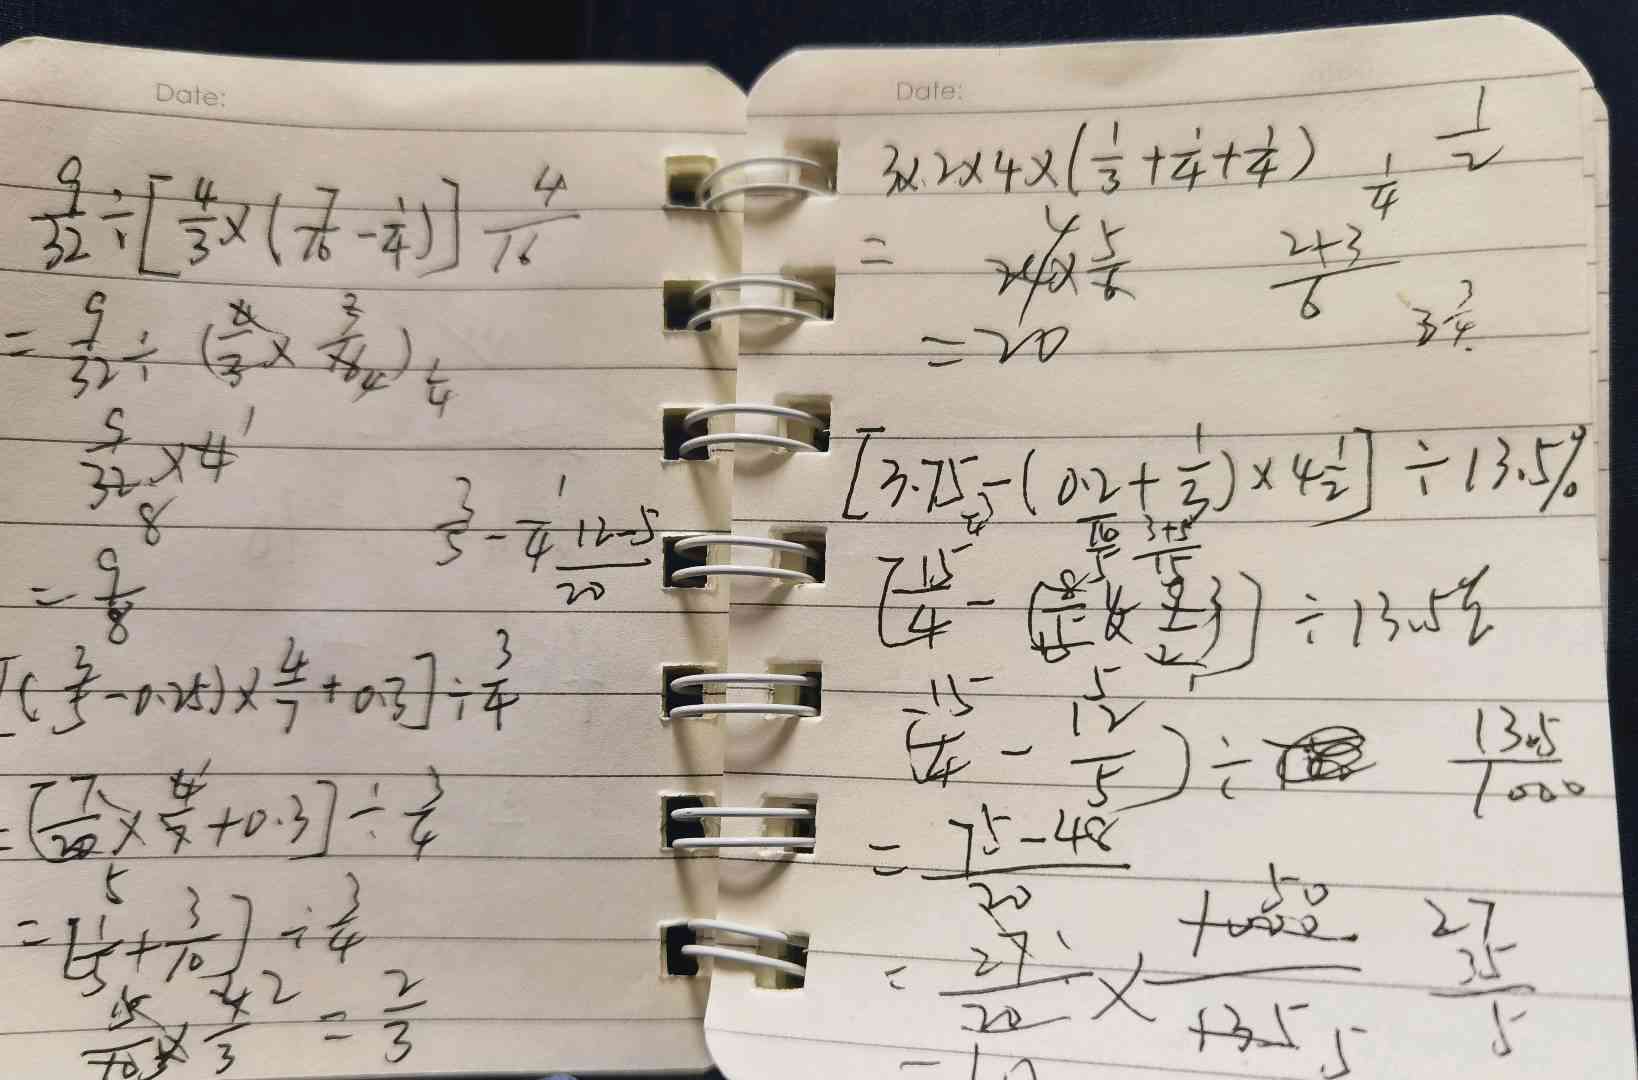 Date:
9/32 ÷ [4/3 × (7/16 - 1/4)] 4/16
= 9/32 ÷ (4/3 × 3/16 4) 1/4
9/32 × 4 1
8
3/5 - 1/4 12-5/20
= 9/8
[(3/5 - 0.25) × 4/7 + 0.3] ÷ 3/4
= [7/20 × 4/7 + 0.3] ÷ 3/4
5
= [1/5 + 3/10] ÷ 3/4
5/10 × 4/3 2 = 2/3
Date:
3×2×4×(1/3+1/4+1/4) 1/4 1/2
= 24× 5/6 2+3/6 3 3/4
4
= 20
[3.75 - (0.2 + 1/3) × 4 1/2] ÷ 13.5%
3+5/15
[15/4 - (8/15 × 9/2)] ÷ 13.5%
(15/4 - 12/5) ÷ 13.5/1000
= 75-48/20
= 27/20 × 1000/135 50 5 27
35/5